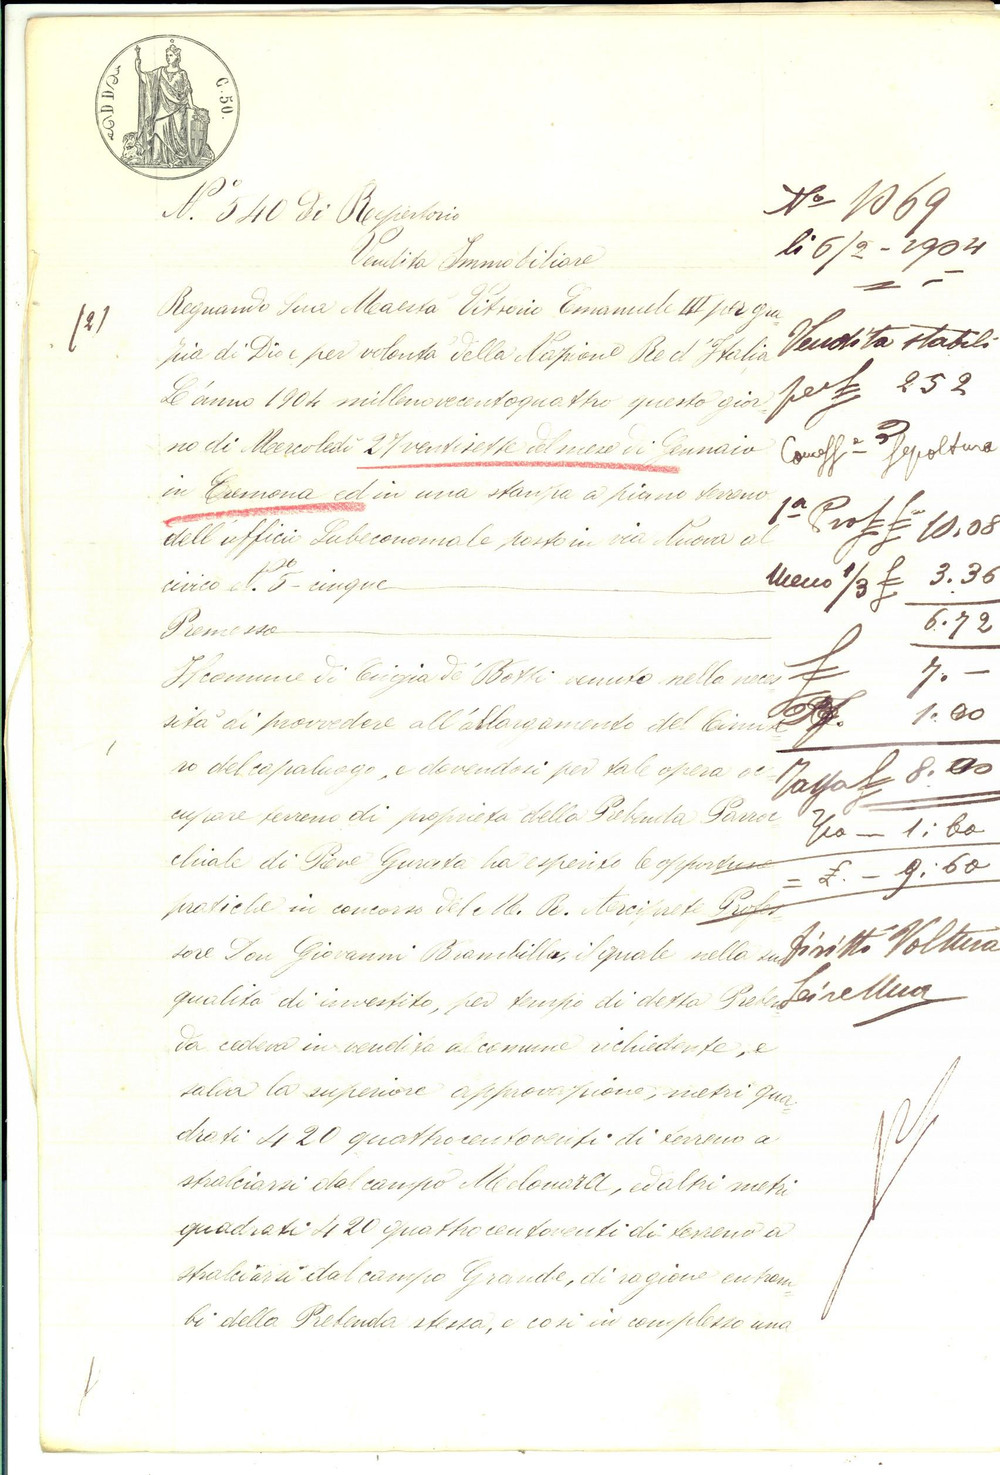 C. 50.
N.° 540 di Repertorio
Vendita Immobiliare
Regnando Sua Maestà Vittorio Emanuele III per gra-
zia di Dio e per volontà della Nazione Re d'Italia
L'anno 1904 millenovecentoquattro questo gior-
no di Mercoledì 27 ventisette del mese di Gennaio
in Cremona ed in una stanza a piano terreno
dell'ufficio Subeconomale, posto in via Nuova al
civico N.° 5 - cinque
Premesso
Il comune di Cingia de' Botti venuto nella neces-
sità di provvedere all'allargamento del Cimite-
ro del capoluogo, e dovendosi per tale opera oc-
cupare terreno di proprietà della Prebenda Parroc-
chiale di Pieve Gurata ha esperite le opportune
pratiche in concorso del M. R. Arciprete Profes-
sore Don Giovanni Brambilla, il quale nella sua
qualità di investito, per tempo di detta Preben-
da cedeva in vendita al comune richiedente, e
salva la superiore approvazione, metri qua-
drati 420 quattrocentoventi di terreno a
stralciarsi dal campo Melonara, ed altri metri
quadrati 420 quattrocentoventi di terreno a
stralciarsi dal campo Grande, di ragione entram-
bi della Prebenda stessa, e così in complesso una
(2)
N° 1069
li 6/2 - 1904
Vendita stabili
per £ 252
Sepoltura
1ª £ 10.08
Meno 1/3 £ 3.36
6.72
£ 7. -
1.00
Tassa £ 8.00
1:60
= £. - 9:60
Diritto Voltura